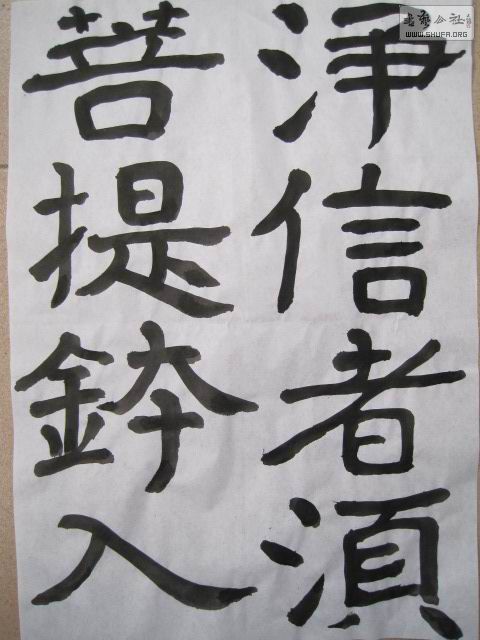 浄信者湏
菩提鉢入
书艺公社
WWW.SHUFA.ORG